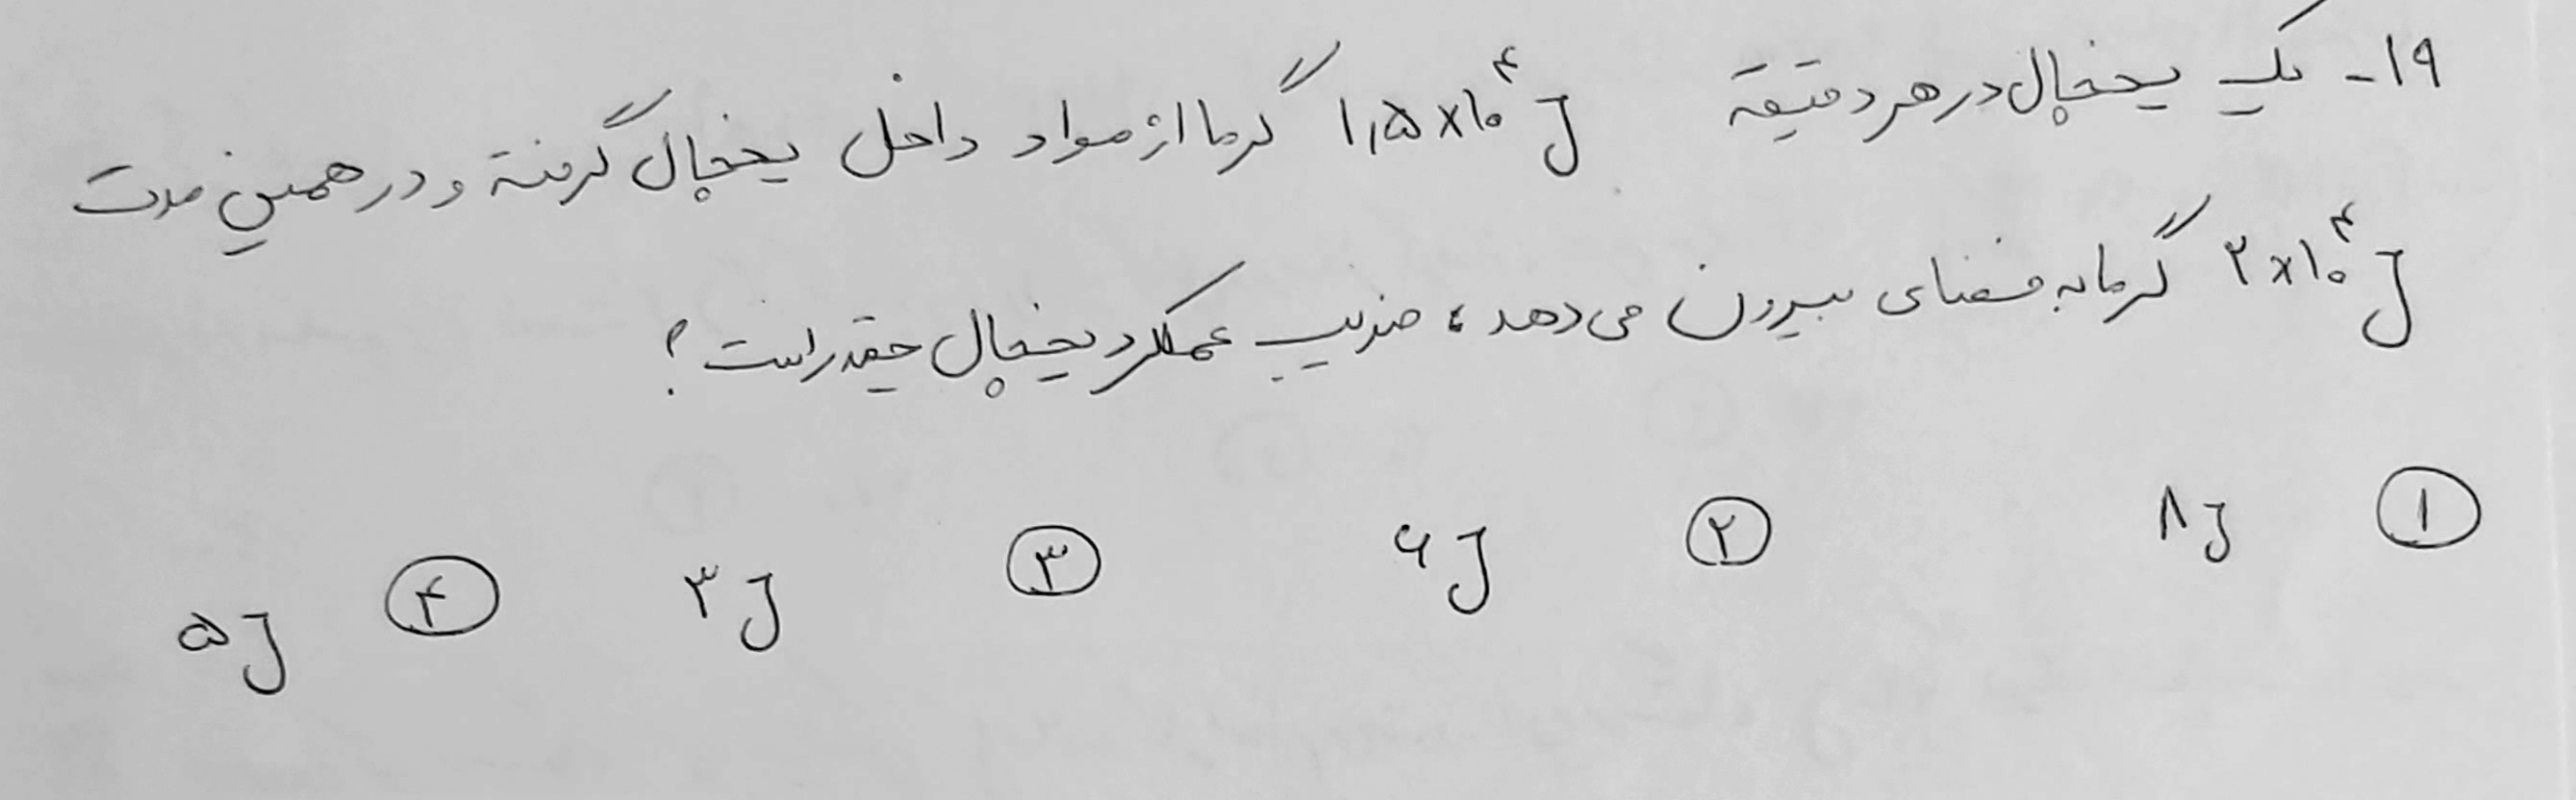 ۱۹- یک یخچال در هر دقیقه ۱,۵×۱۰^۴ J گرما از مواد داخل یخچال گرفته و در همین مدت
۲×۱۰^۴ J گرما به فضای بیرون می‌دهد، ضریب عملکرد یخچال چقدر است؟
۱ ۸J ۲ ۶J ۳ ۳J ۴ ۵J